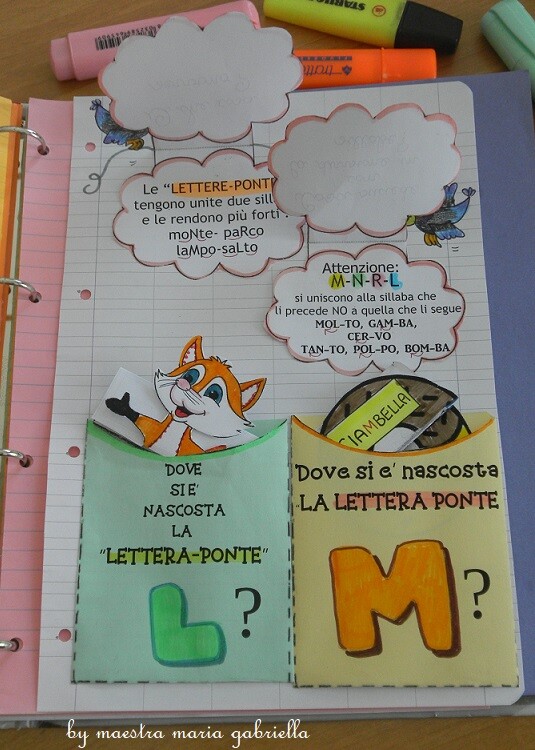 STABILO
Le "LETTERE-PONTE
tengono unite due sill
e le rendono più forti :
moNte- paRco
laMpo-saLto
Attenzione:
M-N-R-L
si uniscono alla sillaba che
li precede NO a quella che li segue
MOL-TO, GAM-BA,
CER-VO
TAN-TO, POL-PO, BOM-BA
CIAMBELLA
DOVE
SI E'
NASCOSTA
LA
"LETTERA-PONTE"
L?
Dove si e' nascosta
LA LETTERA PONTE
M?
by maestra maria gabriella